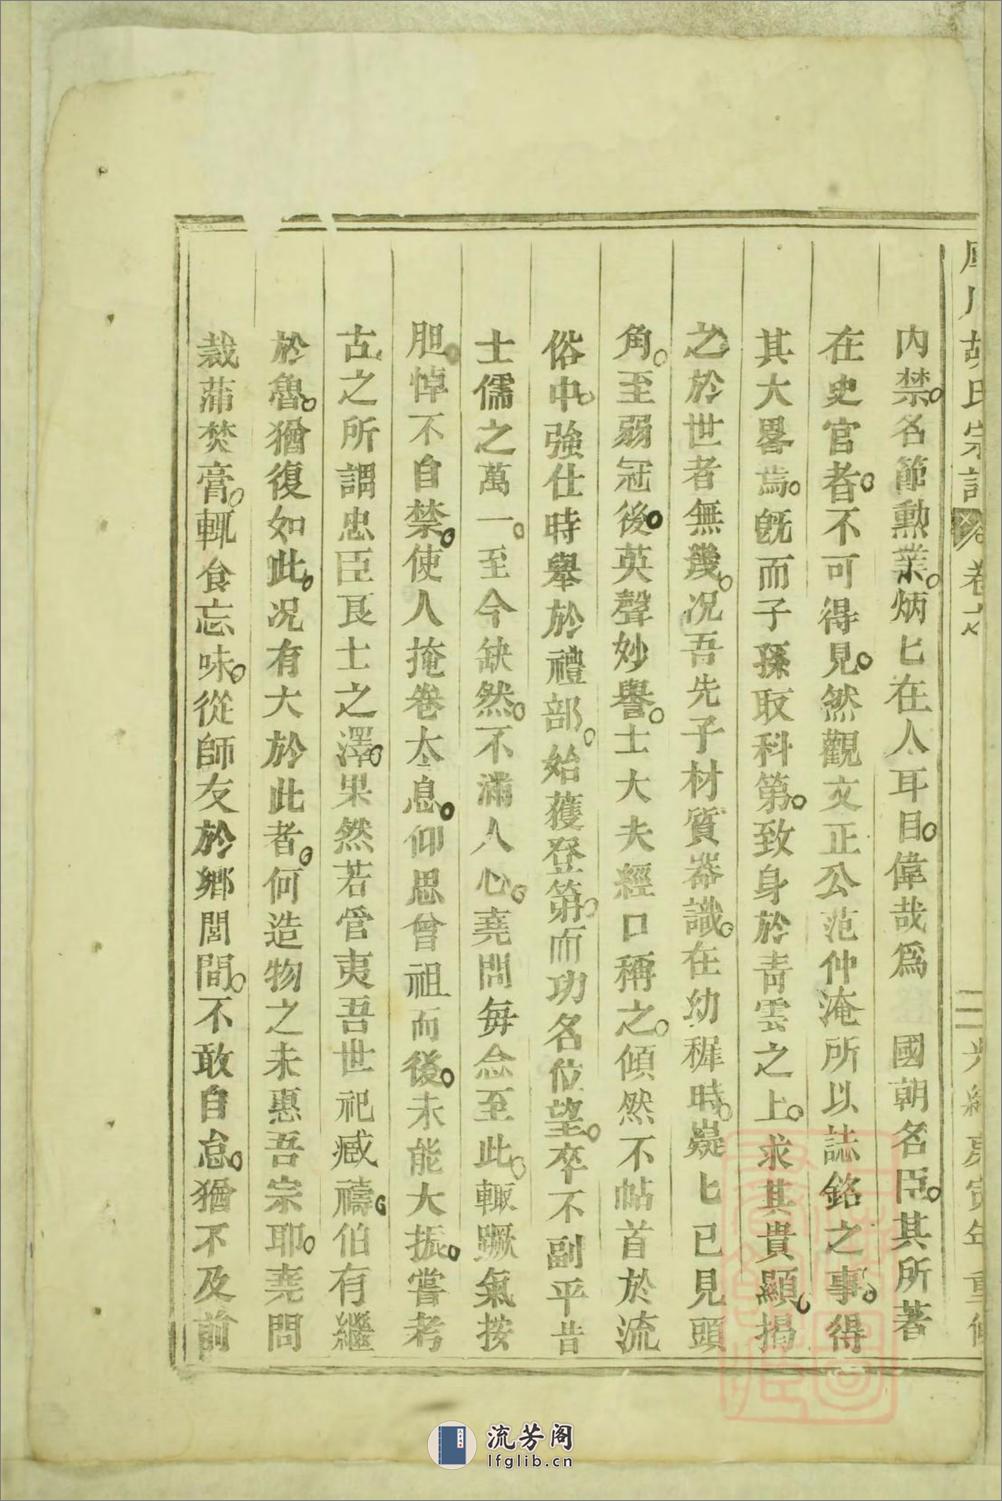 胡氏宗譜 卷之 二 光緒庚寅年重修
内禁名節勳業炳匕在人耳目偉哉爲 國朝名臣其所著
在史官者不可得見然觀文正公范仲淹所以誌銘之事得
其大畧焉旣而子孫取科第致身於靑雲之上求其貴顯揭
之於世者無幾况吾先子材質器識在幼穉時嶷匕已見頭
角至弱冠後英聲妙譽士大夫經口稱之傾然不帖首於流
俗中強仕時舉於禮部始獲登第而功名位望卒不副平昔
士儒之萬一至今缺然不滿人心堯問每念至此輙蹶氣按
胆悼不自禁使人掩卷太息仰思曾祖而後未能大振嘗考
古之所謂忠臣良士之澤果然若管夷吾世祀臧禱伯有繼
於魯猶復如此况有大於此者何造物之未惠吾宗耶堯問
裁蒲焚膏輒食忘味從師友於鄉閭間不敢自怠猶不及前
流芳阁
lfglib.cn